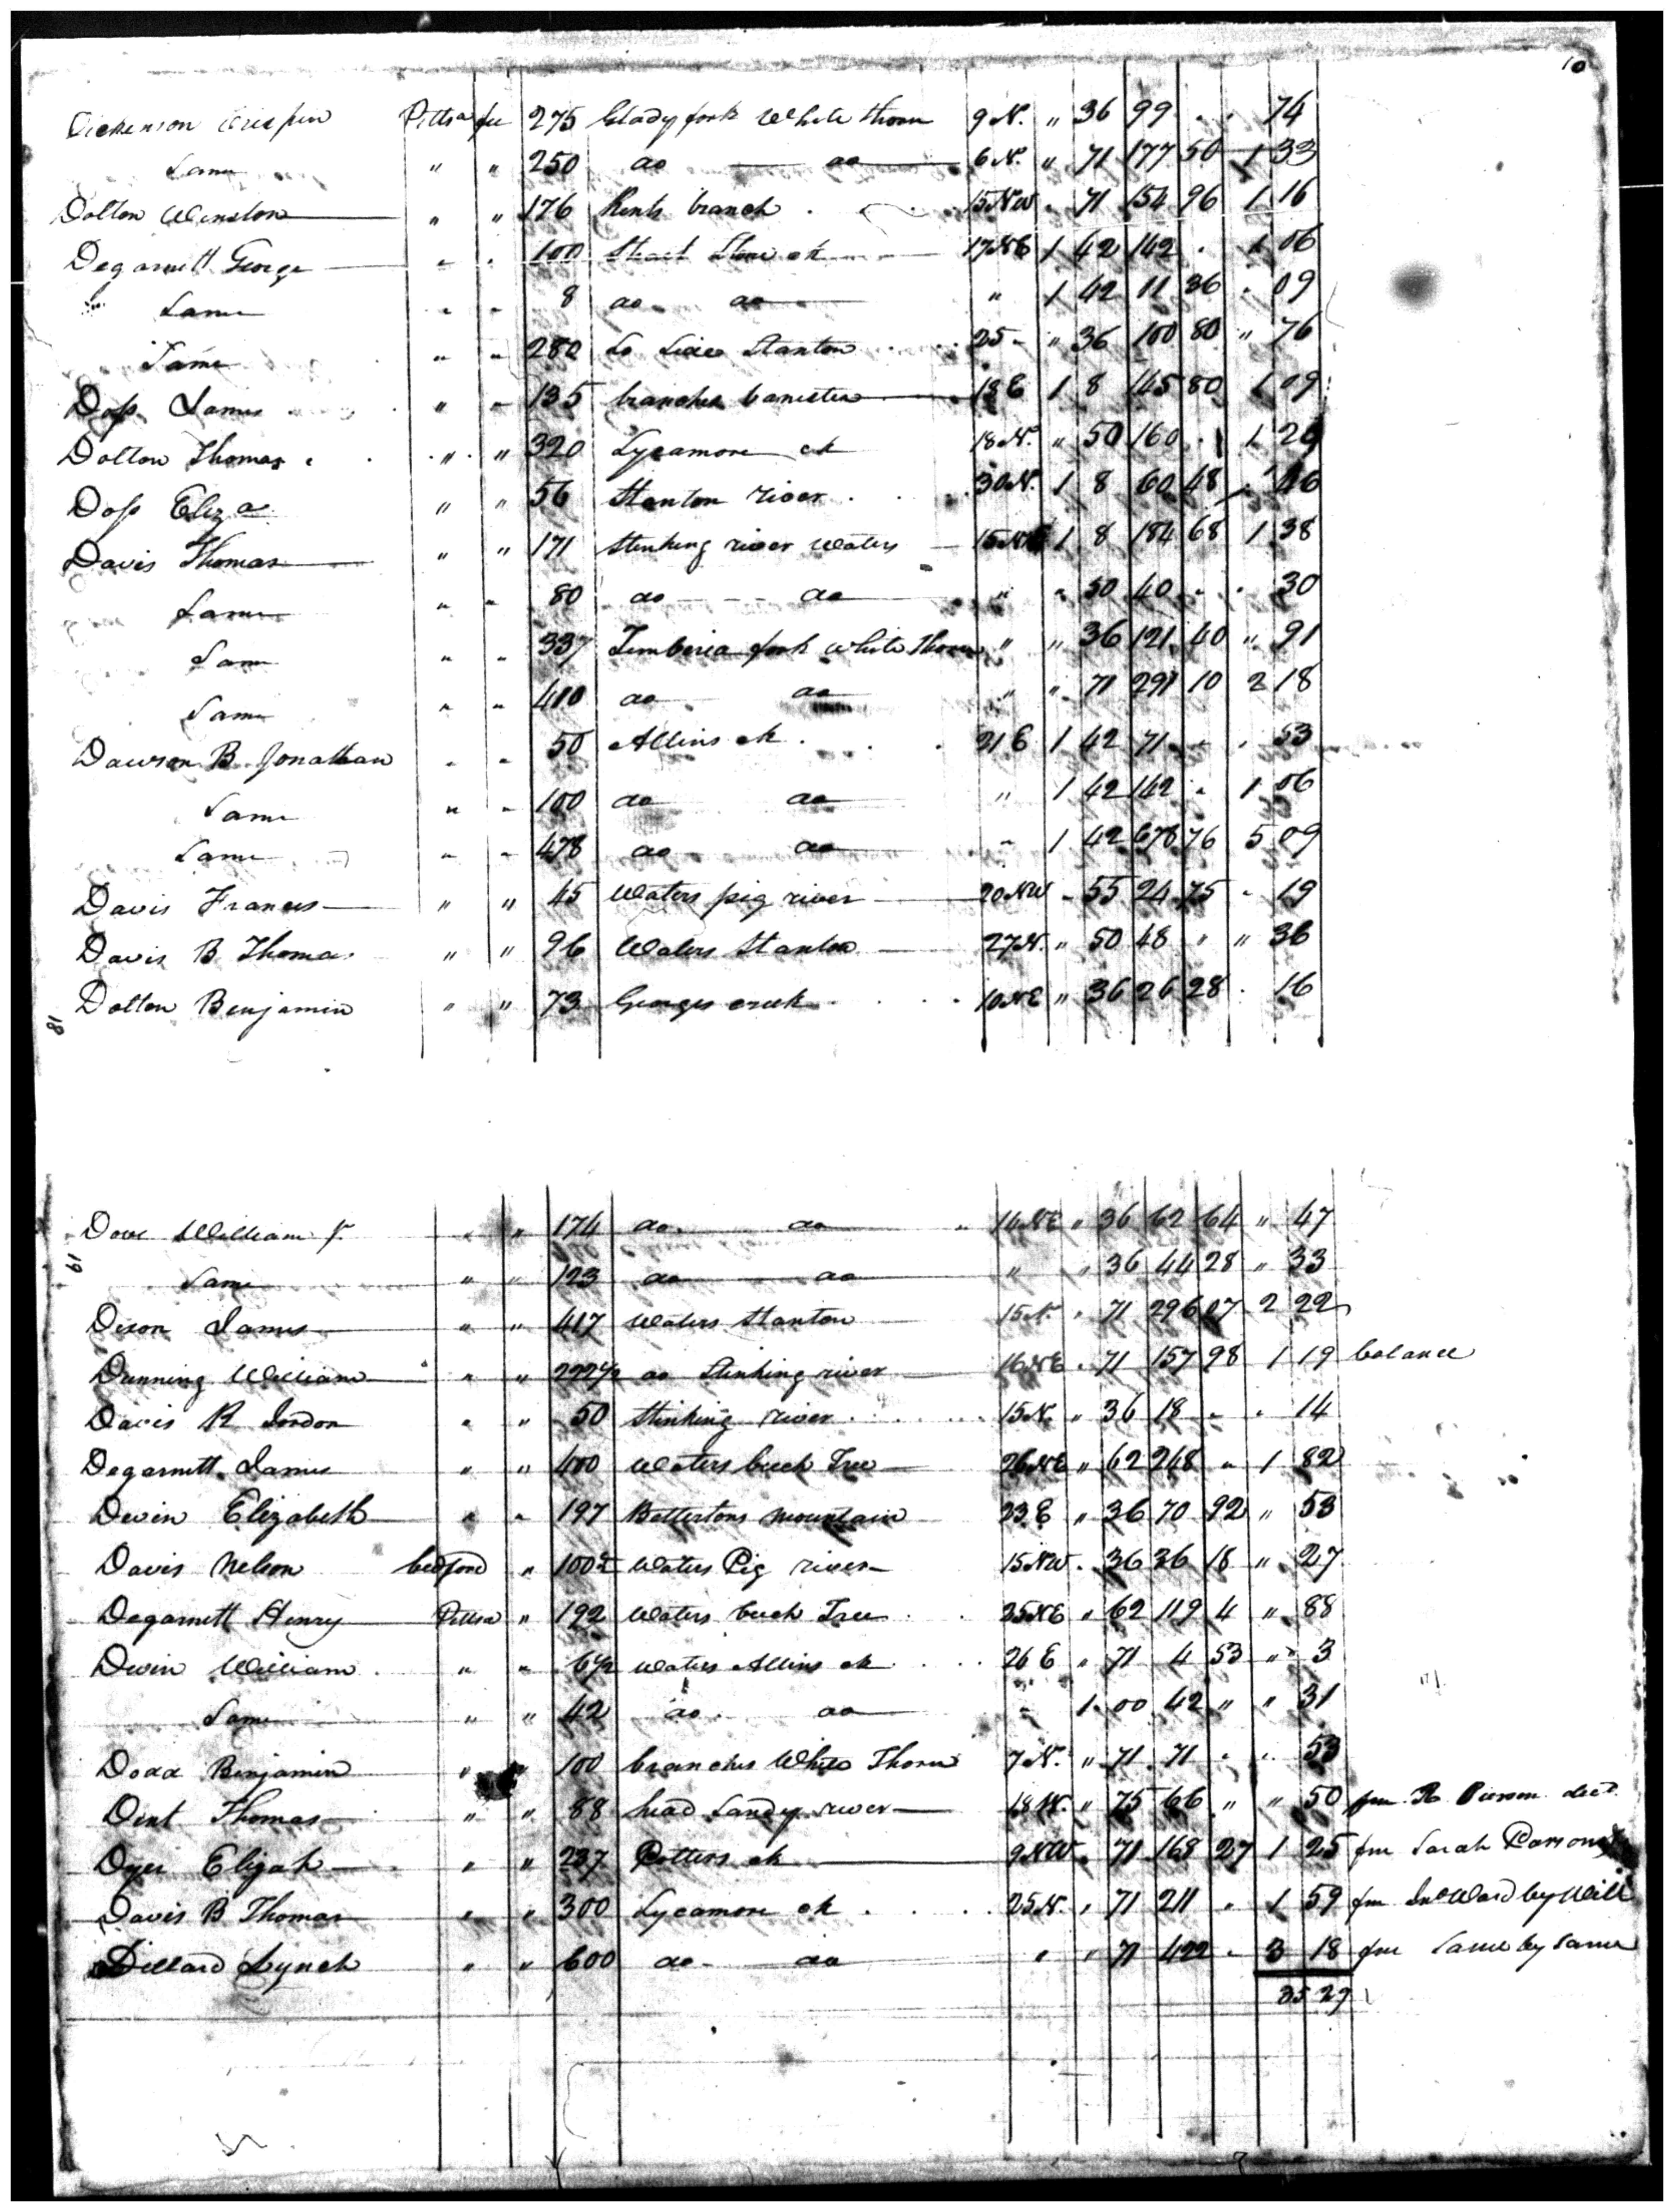 10
Dickenson Crispin Pittsa fee 275 Glady fork White thorn 9 N. " 36 99 . . 74
Same " " 250 do do 6 N. " 71 177 50 1 33
Dolton Winston " " 176 Rents branch 15 NW . 71 154 96 1 16
Degarnett George " " 100 Strait Stone ck 17 NE 1 42 142 . 1 06
Same " " 8 do do " 1 42 11 36 . 09
Same " " 280 So Side Stanton 25 " " 36 100 80 " 76
Doss James " " 135 branches banister 18 E 1 8 145 80 1 09
Dolton Thomas " " 320 Sycamore ck 18 N. " 50 160 . 1 20
Doss Eliza " " 56 Stanton river 30 N. 1 8 60 48 . 46
Davis Thomas " " 171 Stinking river Waters 15 1 8 184 68 1 38
Same " " 80 do do " " 50 40 . . 30
Same " " 337 fork white thorn " " 36 121 40 " 91
Same " " 410 do do " " 71 291 10 2 18
Dawson B Jonathan " " 50 Allins ck 21 E 1 42 71 . . 53
Same " " 100 do do " 1 42 142 . 1 06
Same " " 478 do do " 1 42 678 76 5 09
Davis Frances " " 45 Waters pig river 20 NW . 55 24 75 . 19
Davis B Thomas " " 96 Waters Stanton 27 N. " 50 48 " " 36
81 Dolton Benjamin " " 73 Georges creek 10 NE " 36 26 28 . 16
Dove William Sr " " 174 do do 14 NE " 36 62 64 " 47
19 Same " " 123 do do " " 36 44 28 " 33
Dixon James " " 417 Waters Stanton 15 N. " 71 296 07 2 22
Dunning William " " 222½ do Stinking river 16 NE . 71 157 98 1 19 balance
Davis R Jordon " " 50 Stinking river 15 N. " 36 18 . . 14
Degarnett James " " 400 Waters buch Tree 26 NE " 62 248 " 1 82
Devin Elizabeth " " 197 Bettertons mountain 23 E " 36 70 92 " 53
Davis Nelson bedford " 100½ Waters Pig river 15 NW . 36 36 18 " 27
Degarnett Henry Pittsa " 192 Waters buch Tree 25 NE " 62 119 4 " 88
Devin William " " 6½ Waters Allins ck 26 E " 71 4 53 " 3
Same " " 42 do do " 1 00 42 " " 31
Dodd Benjamin " " 100 branches White Thorn 7 N. " 71 71 . . 53
Dent Thomas " " 88 head Sandy river 18 W. " 75 66 " " 50 fm R Pierson decd
Dyer Elijah " " 237 Potters ck 9 NW . 71 168 27 1 25 fm Sarah Parsons
Davis B Thomas " " 300 Sycamore ck 25 N. " 71 211 " 1 59 fm Jno Ward by Will
Dillard Lynch " " 600 do do " " 71 422 . 3 18 fm Same by Same
35 27